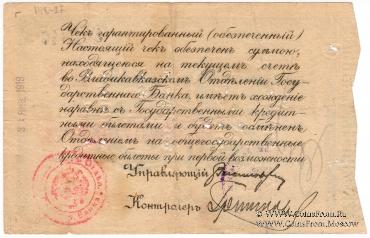 Чекъ гарантированный (обезпеченный)
Настоящій чек обезпечен суммою,
находящеюся на текущем счетѣ
во Владикавказском Отдѣленіи Госу-
дарственнаго Банка, имѣетъ хожденіе
наравнѣ съ Государственными кредит-
ными билетами и будет обмѣнен
Отдѣленіем на общегосударственные
кредитные билеты при первой возможности
Управляющій
Контролеръ
CoinsFrom.Ru
CoinsFrom.Ru - Moscow